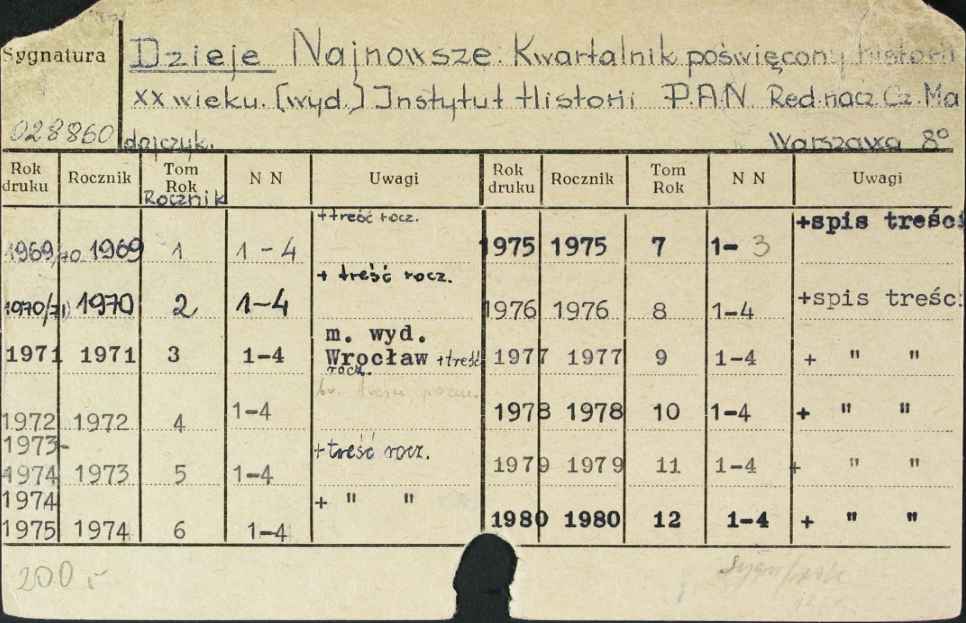 Sygnatura
Dzieje Najnowsze. Kwartalnik poświęcony historii
XX wieku. [wyd.] Instytut Historii P.A.N. Red. nacz. Cz. Ma
028860 dajczyk. Warszawa 8°
Rok druku Rocznik Tom Rok N N Uwagi Rok druku Rocznik Tom Rok N N Uwagi
Rocznik
1969/70 1969 1 1-4 + treść rocz. 1975 1975 7 1-3 +spis treści
1970/71) 1970 2 1-4 + treść rocz. 1976 1976 8 1-4 +spis treści
1971 1971 3 1-4 m. wyd. Wrocław + treść rocz. 1977 1977 9 1-4 + " "
1972 1972 4 1-4 1978 1978 10 1-4 + " "
1973-
1974 1973 5 1-4 + treść rocz. 1979 1979 11 1-4 + " "
1974
1975 1974 6 1-4 + " " 1980 1980 12 1-4 + " "
200